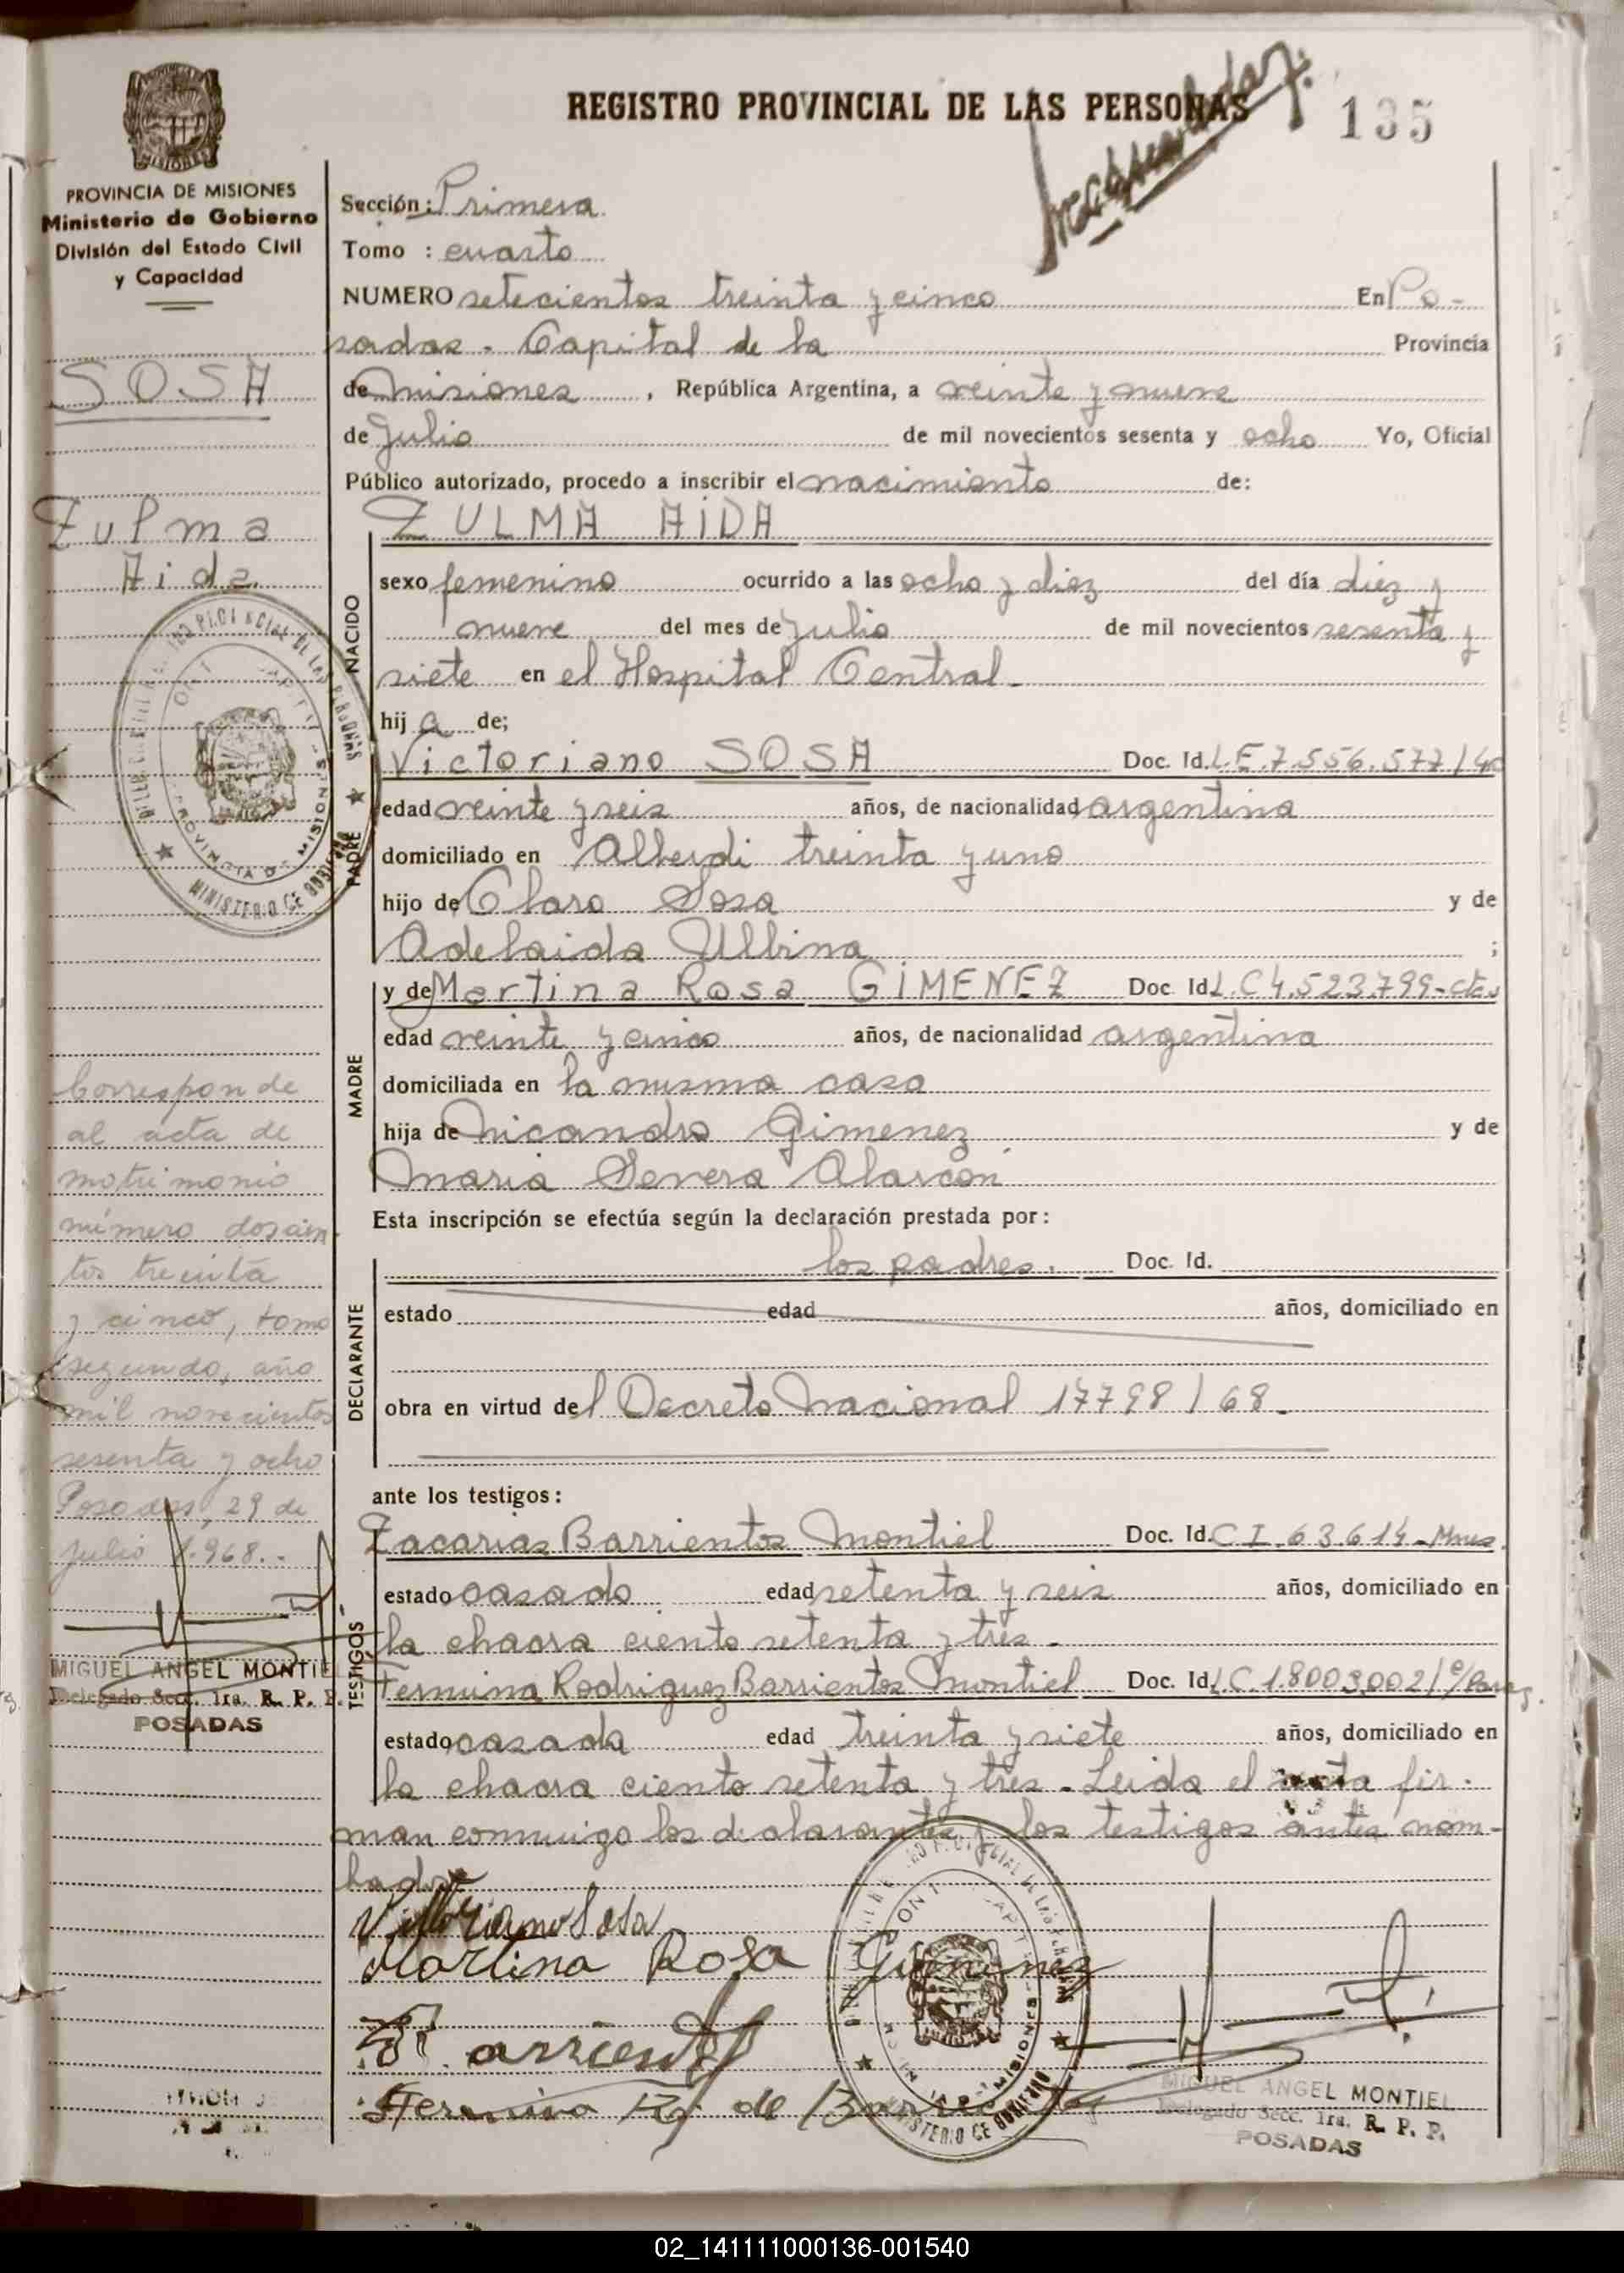 REGISTRO PROVINCIAL DE LAS PERSONAS
135
PROVINCIA DE MISIONES
Ministerio de Gobierno
División del Estado Civil
y Capacidad
SOSA
Zulma
Aida
Corresponde
al acta de
matrimonio
número doscien-
tos treinta
y cinco, tomo
segundo, año
mil novecientos
sesenta y ocho
Posadas, 29 de
julio 1.968.-
MIGUEL ANGEL MONTIEL
Delegado Secc. 1ra. R. P. P.
POSADAS
Sección: Primera
Tomo : cuarto
NUMERO setecientos treinta y cinco En Po-
sadas - Capital de la Provincia
de misiones, República Argentina, a veinte y nueve
de Julio de mil novecientos sesenta y ocho Yo, Oficial
Público autorizado, procedo a inscribir el nacimiento de:
ZULMA AIDA
NACIDO
sexo femenino ocurrido a las ocho y diez del día diez y
nueve del mes de Julio de mil novecientos sesenta y
siete en el Hospital Central.
hija de;
PADRE
Victoriano SOSA Doc. Id. L.E.7.556.577/40
edad veinte y seis años, de nacionalidad argentina
domiciliado en Alberdi treinta y uno
hijo de Claro Sosa y de
Adelaida Ulbina ;
MADRE
y de Martina Rosa GIMENEZ Doc Id L.C 4.523.799-Ctes
edad veinte y cinco años, de nacionalidad argentina
domiciliada en la misma casa
hija de Nicandro Gimenez y de
Maria Severa Alarcón
Esta inscripción se efectúa según la declaración prestada por:
DECLARANTE
los padres. Doc. Id.
estado edad años, domiciliado en
obra en virtud del Decreto Nacional 17798/68.
ante los testigos:
TESTIGOS
Zacarias Barrientos Montiel Doc. Id. C.I. 63.614-Mnes.
estado casado edad setenta y seis años, domiciliado en
la chacra ciento setenta y tres.
Fermina Rodriguez Barrientos Montiel Doc. Id. L.C.1.8003.002/
estado casada edad treinta y siete años, domiciliado en
la chacra ciento setenta y tres. Leida el acta fir-
man conmigo los declarantes y los testigos antes nom-
brados
Victoriano Sosa
Martina Rosa Gimenez
Fermina R. de Barrientos
MINISTERIO DE GOBIERNO
PROVINCIA DE MISIONES
MIGUEL ANGEL MONTIEL
Delegado Secc. 1ra. R. P. P.
POSADAS
02_141111000136-001540